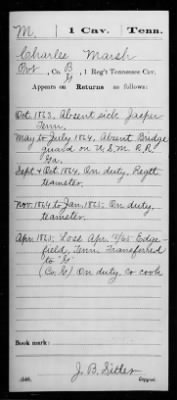 M. 1 Cav. Tenn.
Charles Marsh
Pvt, Co. B
G, 1 Reg't Tennessee Cav.
Appears on Returns as follows:
Oct. 1863, Absent sick Jasper
Tenn.
May to July 1864, Absent Bridge
guard on N.&M. R.R.
Ga.
Sept & Oct. 1864. On duty, Regtl
teamster.
Nov. 1864 to Jan. 1865. On duty,
teamster.
Apr. 1865; Loss Apr. 11/65 Edge-
field, Tenn Transferred
to "G"
(Co. G) On duty, co cook
Book mark:
J. B. Sitler
Copyist.